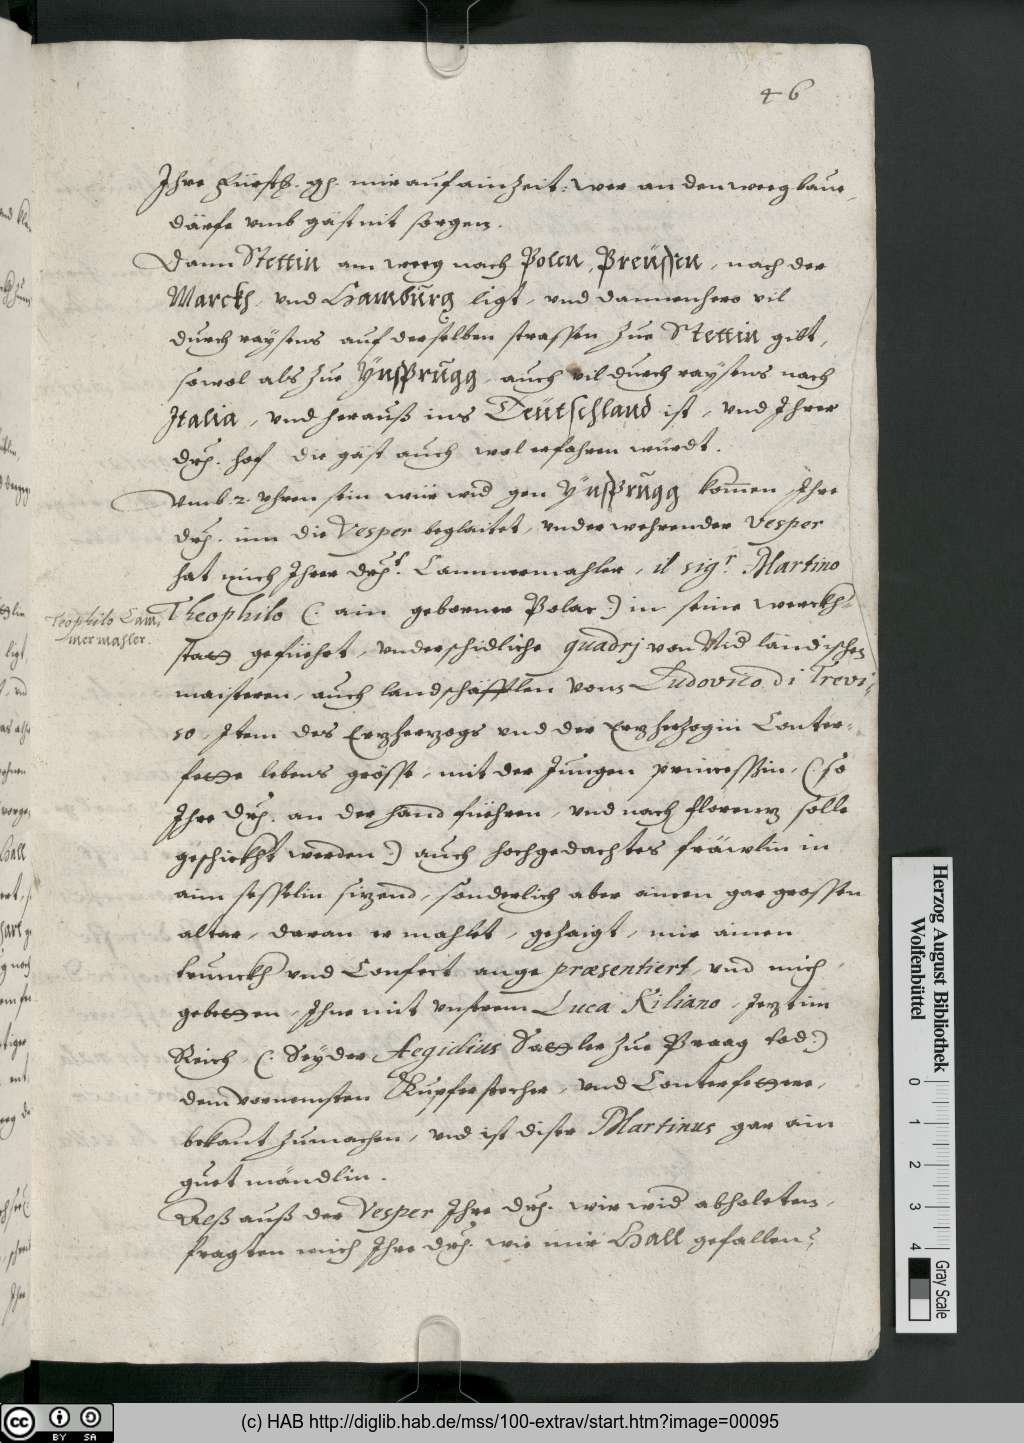 46
Ihre Fürstl. gl. mir auf ain Zeit: wer an den weeg baue,
därfe vmb gäst nit sorgen.
Dann Stettin am weeg nach Polen, Preüssen, nach der
Marckh, vnd Hambürg ligt, vnd dannenhero vil
durch raÿsens auf derselben strassen zue Stettin gibt,
sowol als zue Ÿnsprügg, auch vil durch raÿsens nach
Italia, vnd herauß ins Teütschland ist, vnd Ihrer
Drl. hof die gäst auch wol erfahren würdt.
Vmb .2. vhren sein wür wid gen Ÿnsprügg komen Ihre
Drl. inn die Vesper beglaitet, vnder wehrender Vesper
hat mich Ihrer Drl.t Cammermahler, il sigr. Martino
Theophilo (: ain geborner Polac :) in seine werckh-
Teophilo Cam,
mermahler.
statt gefüehrt, vnderschidliche quadrj von Niderländischen
maisteren, auch landschäfftlen vom Ludovico di Trevi,
so, Item des Erzherzogs vnd der Erzherzogin Conter-
fette lebens grösse, mit der Jungen princessin, (: so
Ihre Drl. an der hand füehren, vnd nach florenz solle
geschickht werden :) auch hochgedachtes fräwlin in
aim sesselin sizend, sonderlich aber ainen gar grossen
altar, daran er mahlet, gezaigt, mir ainen
trunckh vnd Confect ange præsentiert, vnd mich
gebetten, Ihne mit vnserem Luca Kiliano, Jezt im
Reich (: Seÿder Aegidius Sattler zue Praag tod :)
dem vornemsten Kupferstecher, vnd Conterfettere,
bekant zumachen, vnd ist diser Martinus gar ain
guet mändlin.
Alß auß der Vesper Ihre Drl. wir wid abholeten,
fragten mich Ihre Drl. wie mir Hall gefallen?
Herzog August Bibliothek
Wolfenbüttel
0 1 2 3 4
Gray Scale
cc BY SA
(c) HAB http://diglib.hab.de/mss/100-extrav/start.htm?image=00095